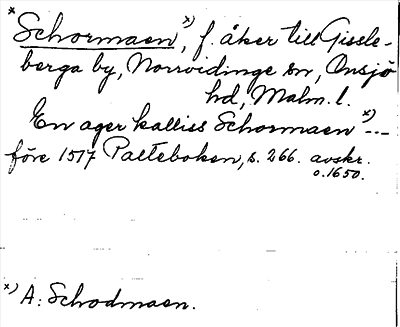 * Schormaen x), f. åker till Gissle-
berga by, Norrvidinge sn, Onsjö
hd, Malm. l.
En ager kalliss Schormaen x) ---
före 1517 Palteboken, s. 266. avskr.
o. 1650.
x) A: Schodmaen.